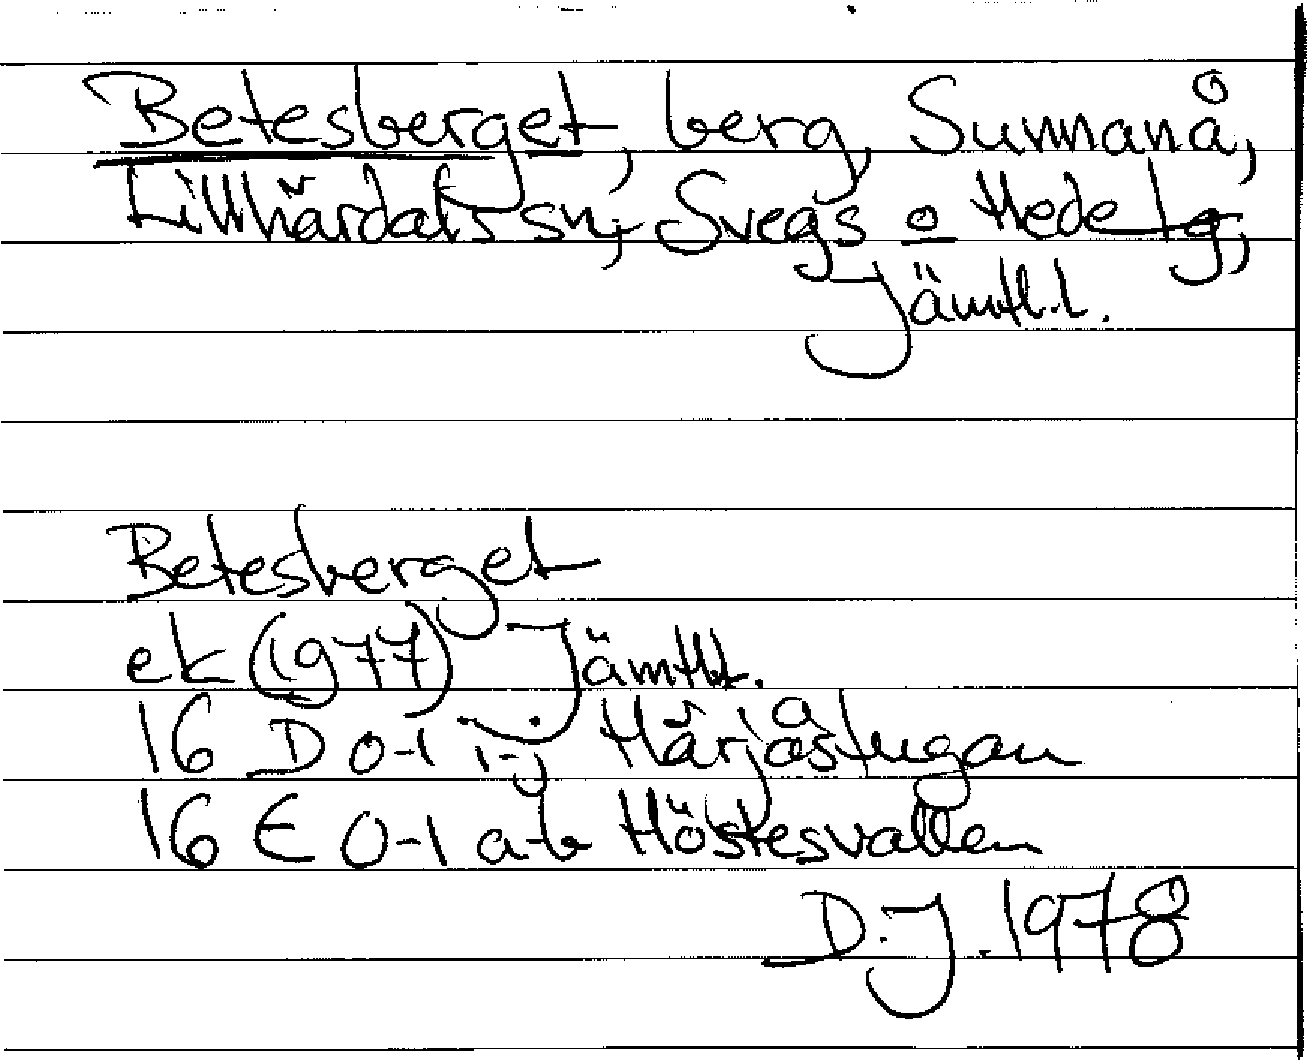 Betesberget, berg, Sunnanå,
Lillhärdals sn, Svegs o Hede tg,
Jämtl.l.
Betesberget
ek (1977) Jämtl.l.
16 D 0-1 i-j Härjåstugan
16 E 0-1 a-b Höstesvallen
D.J. 1978